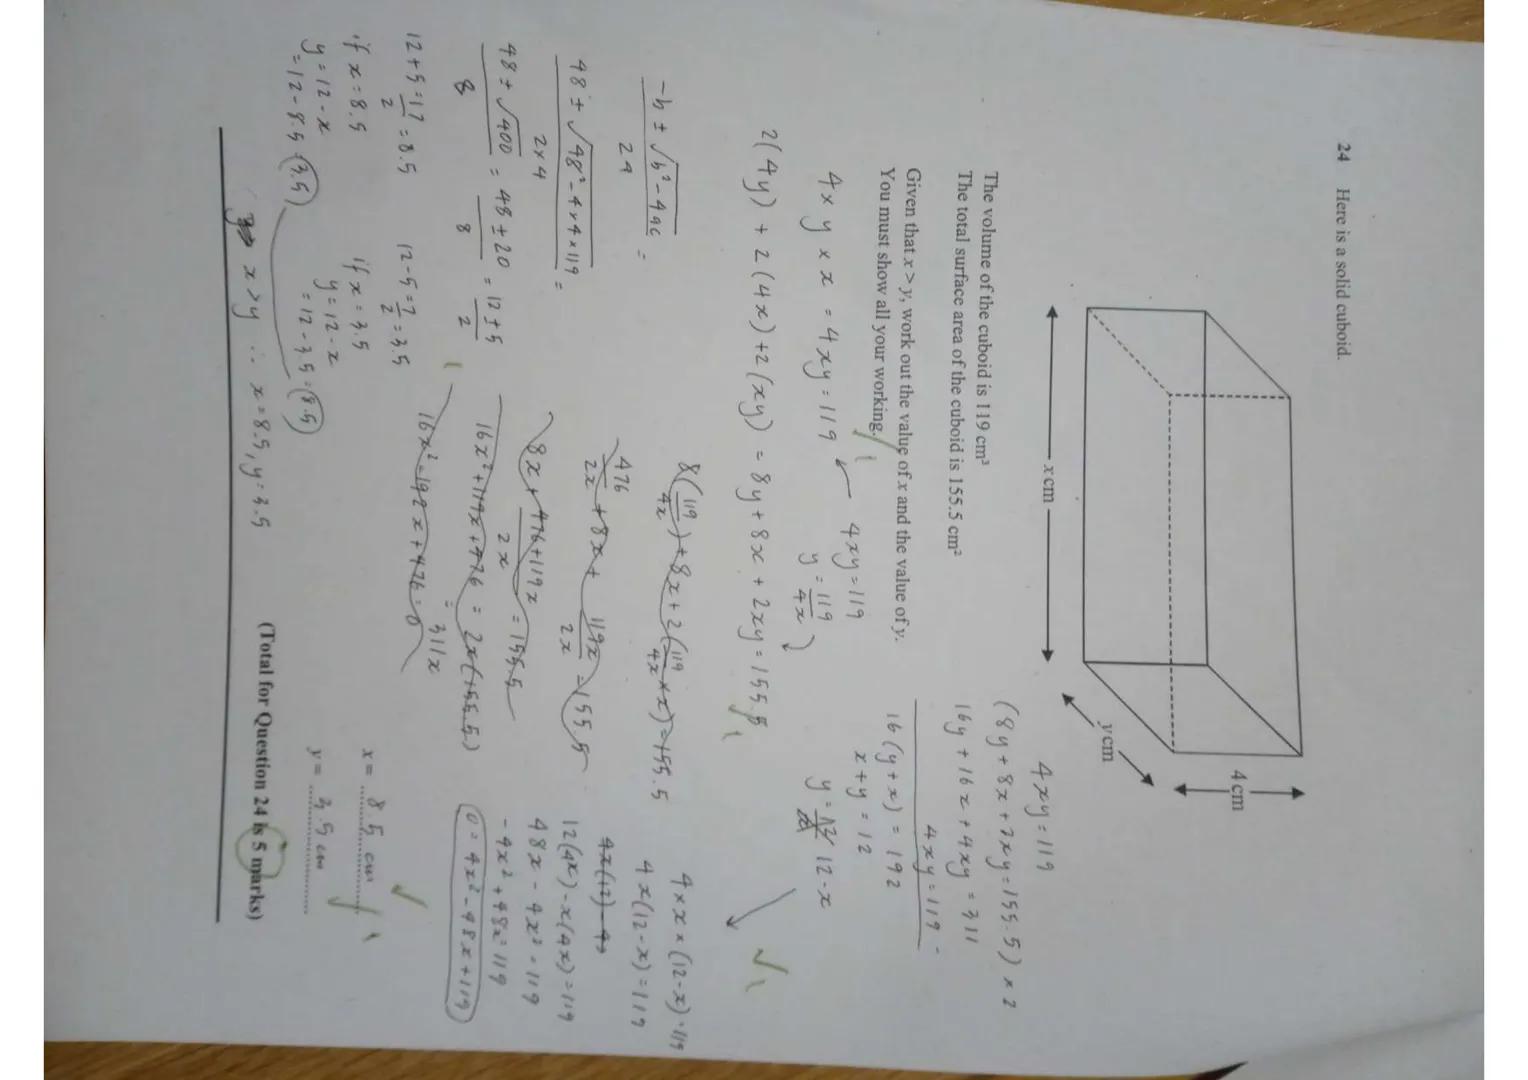 24 Here is a solid cuboid.
4 cm
y cm
x cm
The volume of the cuboid is 119 cm³
The total surface area of the cuboid is 155.5 cm²
Given that x > y, work out the value of x and the value of y.
You must show all your working.
4 × y × x = 4xy = 119
4xy = 119
y = 119/4x
2(4y) + 2(4x) + 2(xy) = 8y + 8x + 2xy = 155.5
4xy = 119
(8y + 8x + 2xy = 155.5) × 2
16y + 16x + 4xy = 311
4xy = 119 -
16(y + x) = 192
x + y = 12
y = 12 - x
8(119/4x) + 8x + 2(119/4x × x) = 155.5
476/2x + 8x + 119x/2x = 155.5
8x + 476+119x/2x = 155.5
16x² + 119x + 476 = 2x(155.5)
= 311x
16x² - 192x + 476 = 0
4 × x × (12 - x) = 119
4x(12 - x) = 119
4x(12) - 4x
12(4x) - x(4x) = 119
48x - 4x² = 119
-4x² + 48x = 119
0 = 4x² - 48x + 119
-b ± √b² - 4ac / 2a =
48 ± √48² - 4×4×119 / 2×4 =
48 ± √400 / 8 = 48 ± 20 / 8 = 12 ± 5 / 2
12 + 5 = 17/2 = 8.5
12 - 5 = 7/2 = 3.5
if x = 8.5
y = 12 - x
= 12 - 8.5 = 3.5
if x = 3.5
y = 12 - x
= 12 - 3.5 = 8.5
x > y ∴ x = 8.5, y = 3.5
x = 8.5 cm
y = 3.5 cm
(Total for Question 24 is 5 marks)